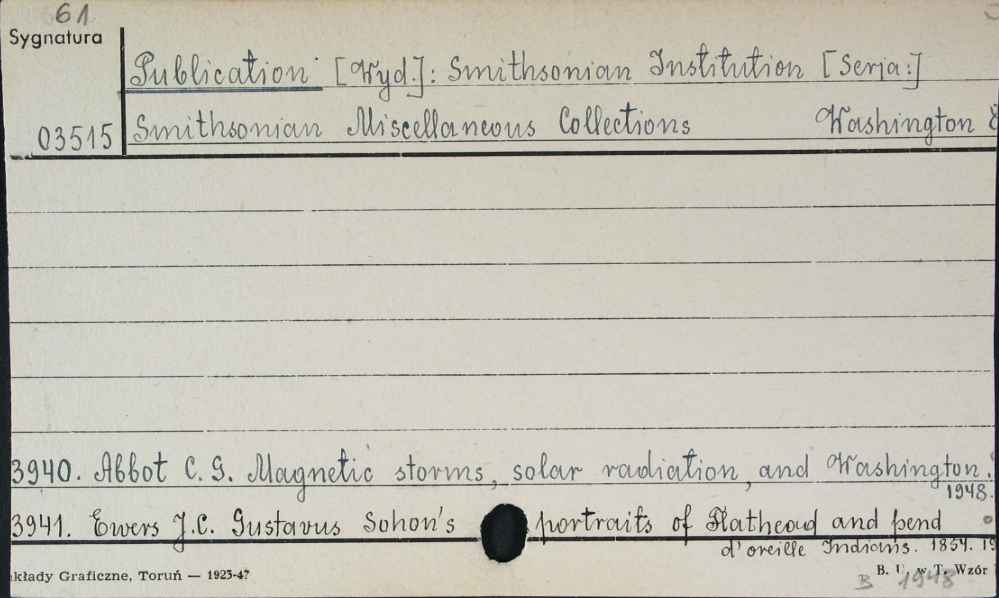 61
Sygnatura
Publication [Wyd.]: Smithsonian Institution [Serja:]
03515 Smithsonian Miscellaneous Collections Washington
3940. Abbot C. G. Magnetic storms, solar radiation, and Washington.
1948.
3941. Ewers J.C. Gustavus Sohon's portraits of Flathead and pend
d'oreille Indians. 1854. 19
kłady Graficzne, Toruń — 1923-47
B. U. w T. Wzór
B 1948